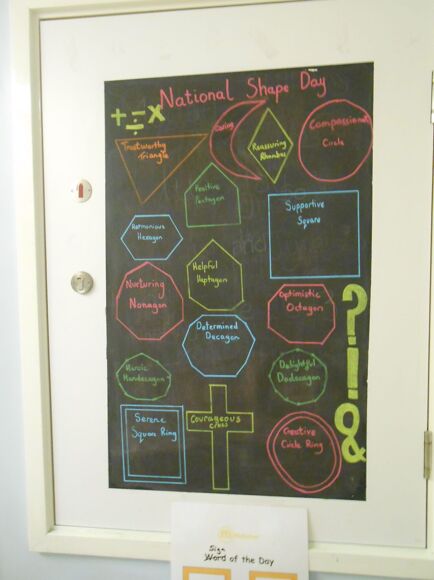 National Shape Day
+ ÷ x
Caring
Compassionate
Circle
Trustworthy
Triangle
Reassuring
Rhombus
Positive
Pentagon
Supportive
Square
Harmonious
Hexagon
Helpful
Heptagon
Nurturing
Nonagon
Optimistic
Octagon
Determined
Decagon
Heroic
Hendecagon
Delightful
Dodecagon
? ! &
Serene
Square Ring
Courageous
Cross
Creative
Circle Ring
Sign
Word of the Day